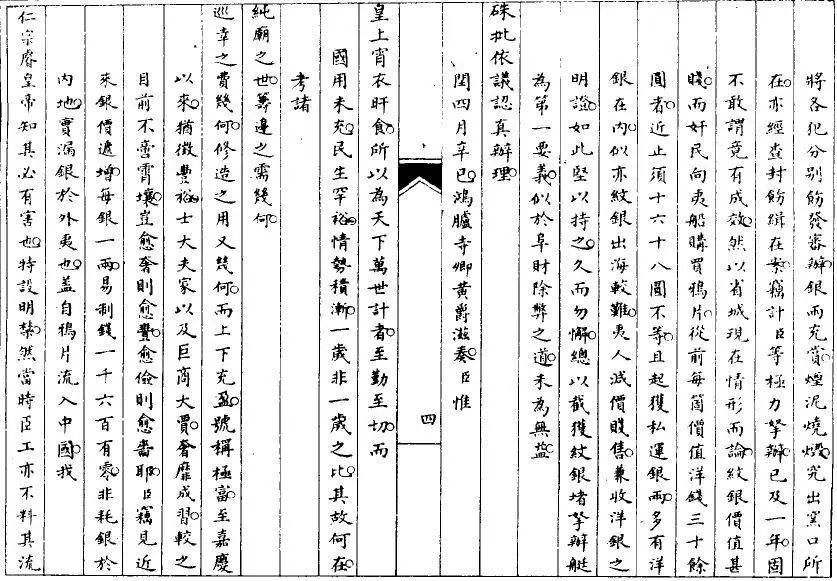 將各犯分別飭發審辦銀兩充賞煙泥燒燬究出窰口所
在亦經查封飭緝在案竊計臣等極力拏辦已及一年固
不敢謂竟有成效然以省城現在情形而論紋銀價值甚
賤而奸民向夷船購買鴉片從前每箇價值洋錢三十餘
圓者近止須十六十八圓不等且起獲私運銀兩多有洋
銀在內似亦紋銀出海較難夷人減價賤售兼收洋銀之
明證如此堅以持之久而勿懈總以截獲紋銀堵拏辦艇
為第一要義似於阜財除弊之道未為無益
硃批依議認真辦理
閏四月辛巳鴻臚寺卿黃爵滋奏臣惟
四
皇上宵衣旰食所以為天下萬世計者至勤至切而
國用未充民生罕裕情勢積漸一歲非一歲之比其故何在
考諸
純廟之世籌邊之需幾何
巡幸之費幾何修造之用又幾何而上下充盈號稱極富至嘉慶
以來猶徵豐裕士大夫家以及巨商大賈奢靡成習較之
目前不啻霄壤豈愈奢則愈豐愈儉則愈嗇耶臣竊見近
來銀價遞增每銀一兩易制錢一千六百有零非耗銀於
內地實漏銀於外夷也蓋自鴉片流入中國我
仁宗睿皇帝知其必有害也特設明禁然當時臣工亦不料其流